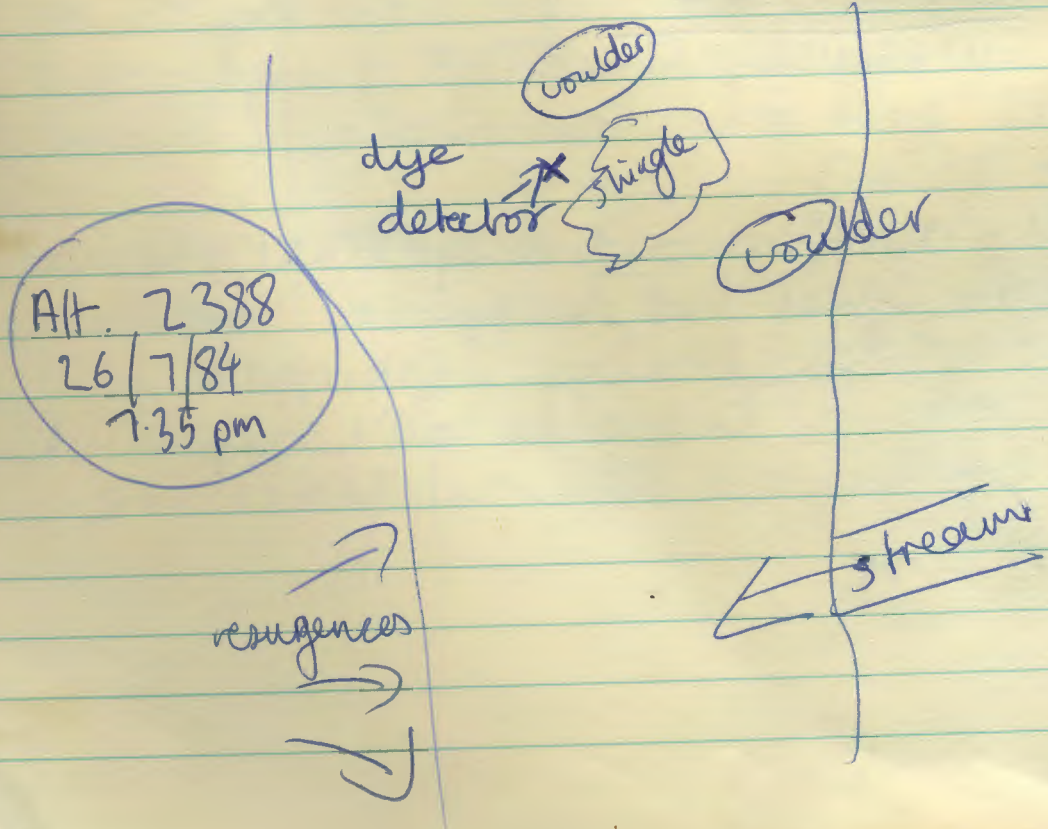 voulder
dye
detector
shingle
voulder
Alt. 2388
26/7/84
7.35 pm
stream
resugences